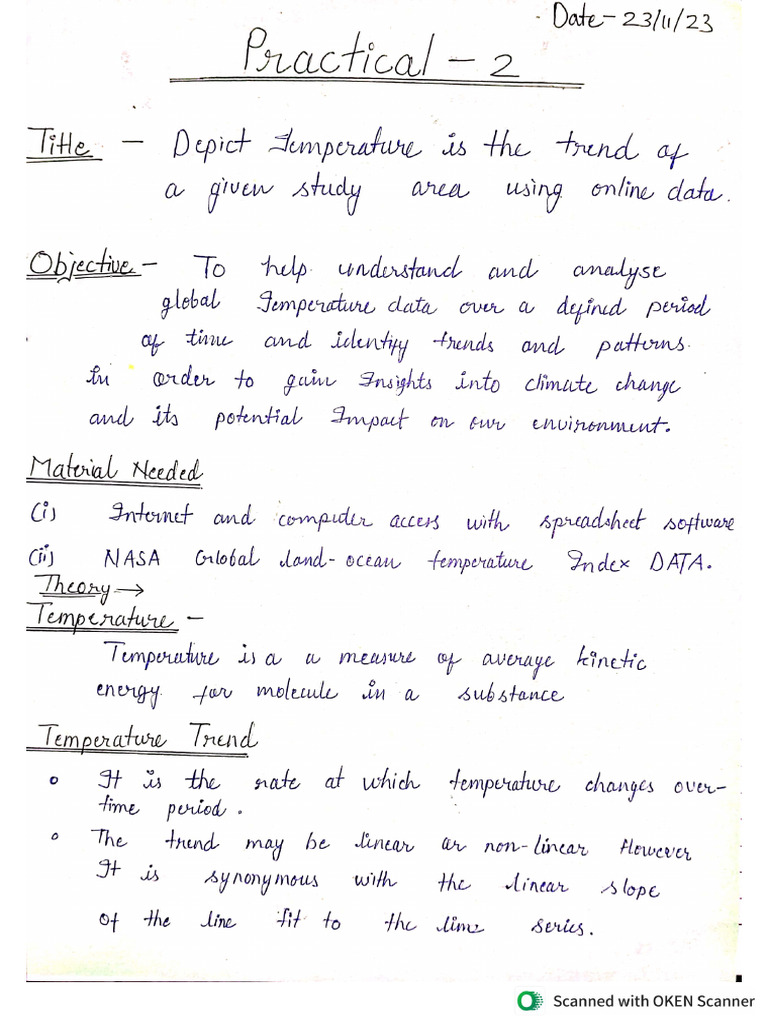 Date-23/11/23
Practical - 2
Title - Depict Temperature is the trend of
a given study area using online data.
Objective - To help understand and analyse
global Temperature data over a defined period
of time and identify trends and patterns.
In order to gain Insights into climate change
and its potential Impact on our environment.
Material Needed
(i) Internet and computer access with spreadsheet software
(ii) NASA Global land-ocean temperature Index DATA.
Theory →
Temperature -
Temperature is a a measure of average kinetic
energy for molecule in a substance
Temperature Trend
o It is the rate at which temperature changes over-
time period.
o The trend may be linear or non-linear However
It is synonymous with the linear slope
Of the line fit to the time series.
Scanned with OKEN Scanner